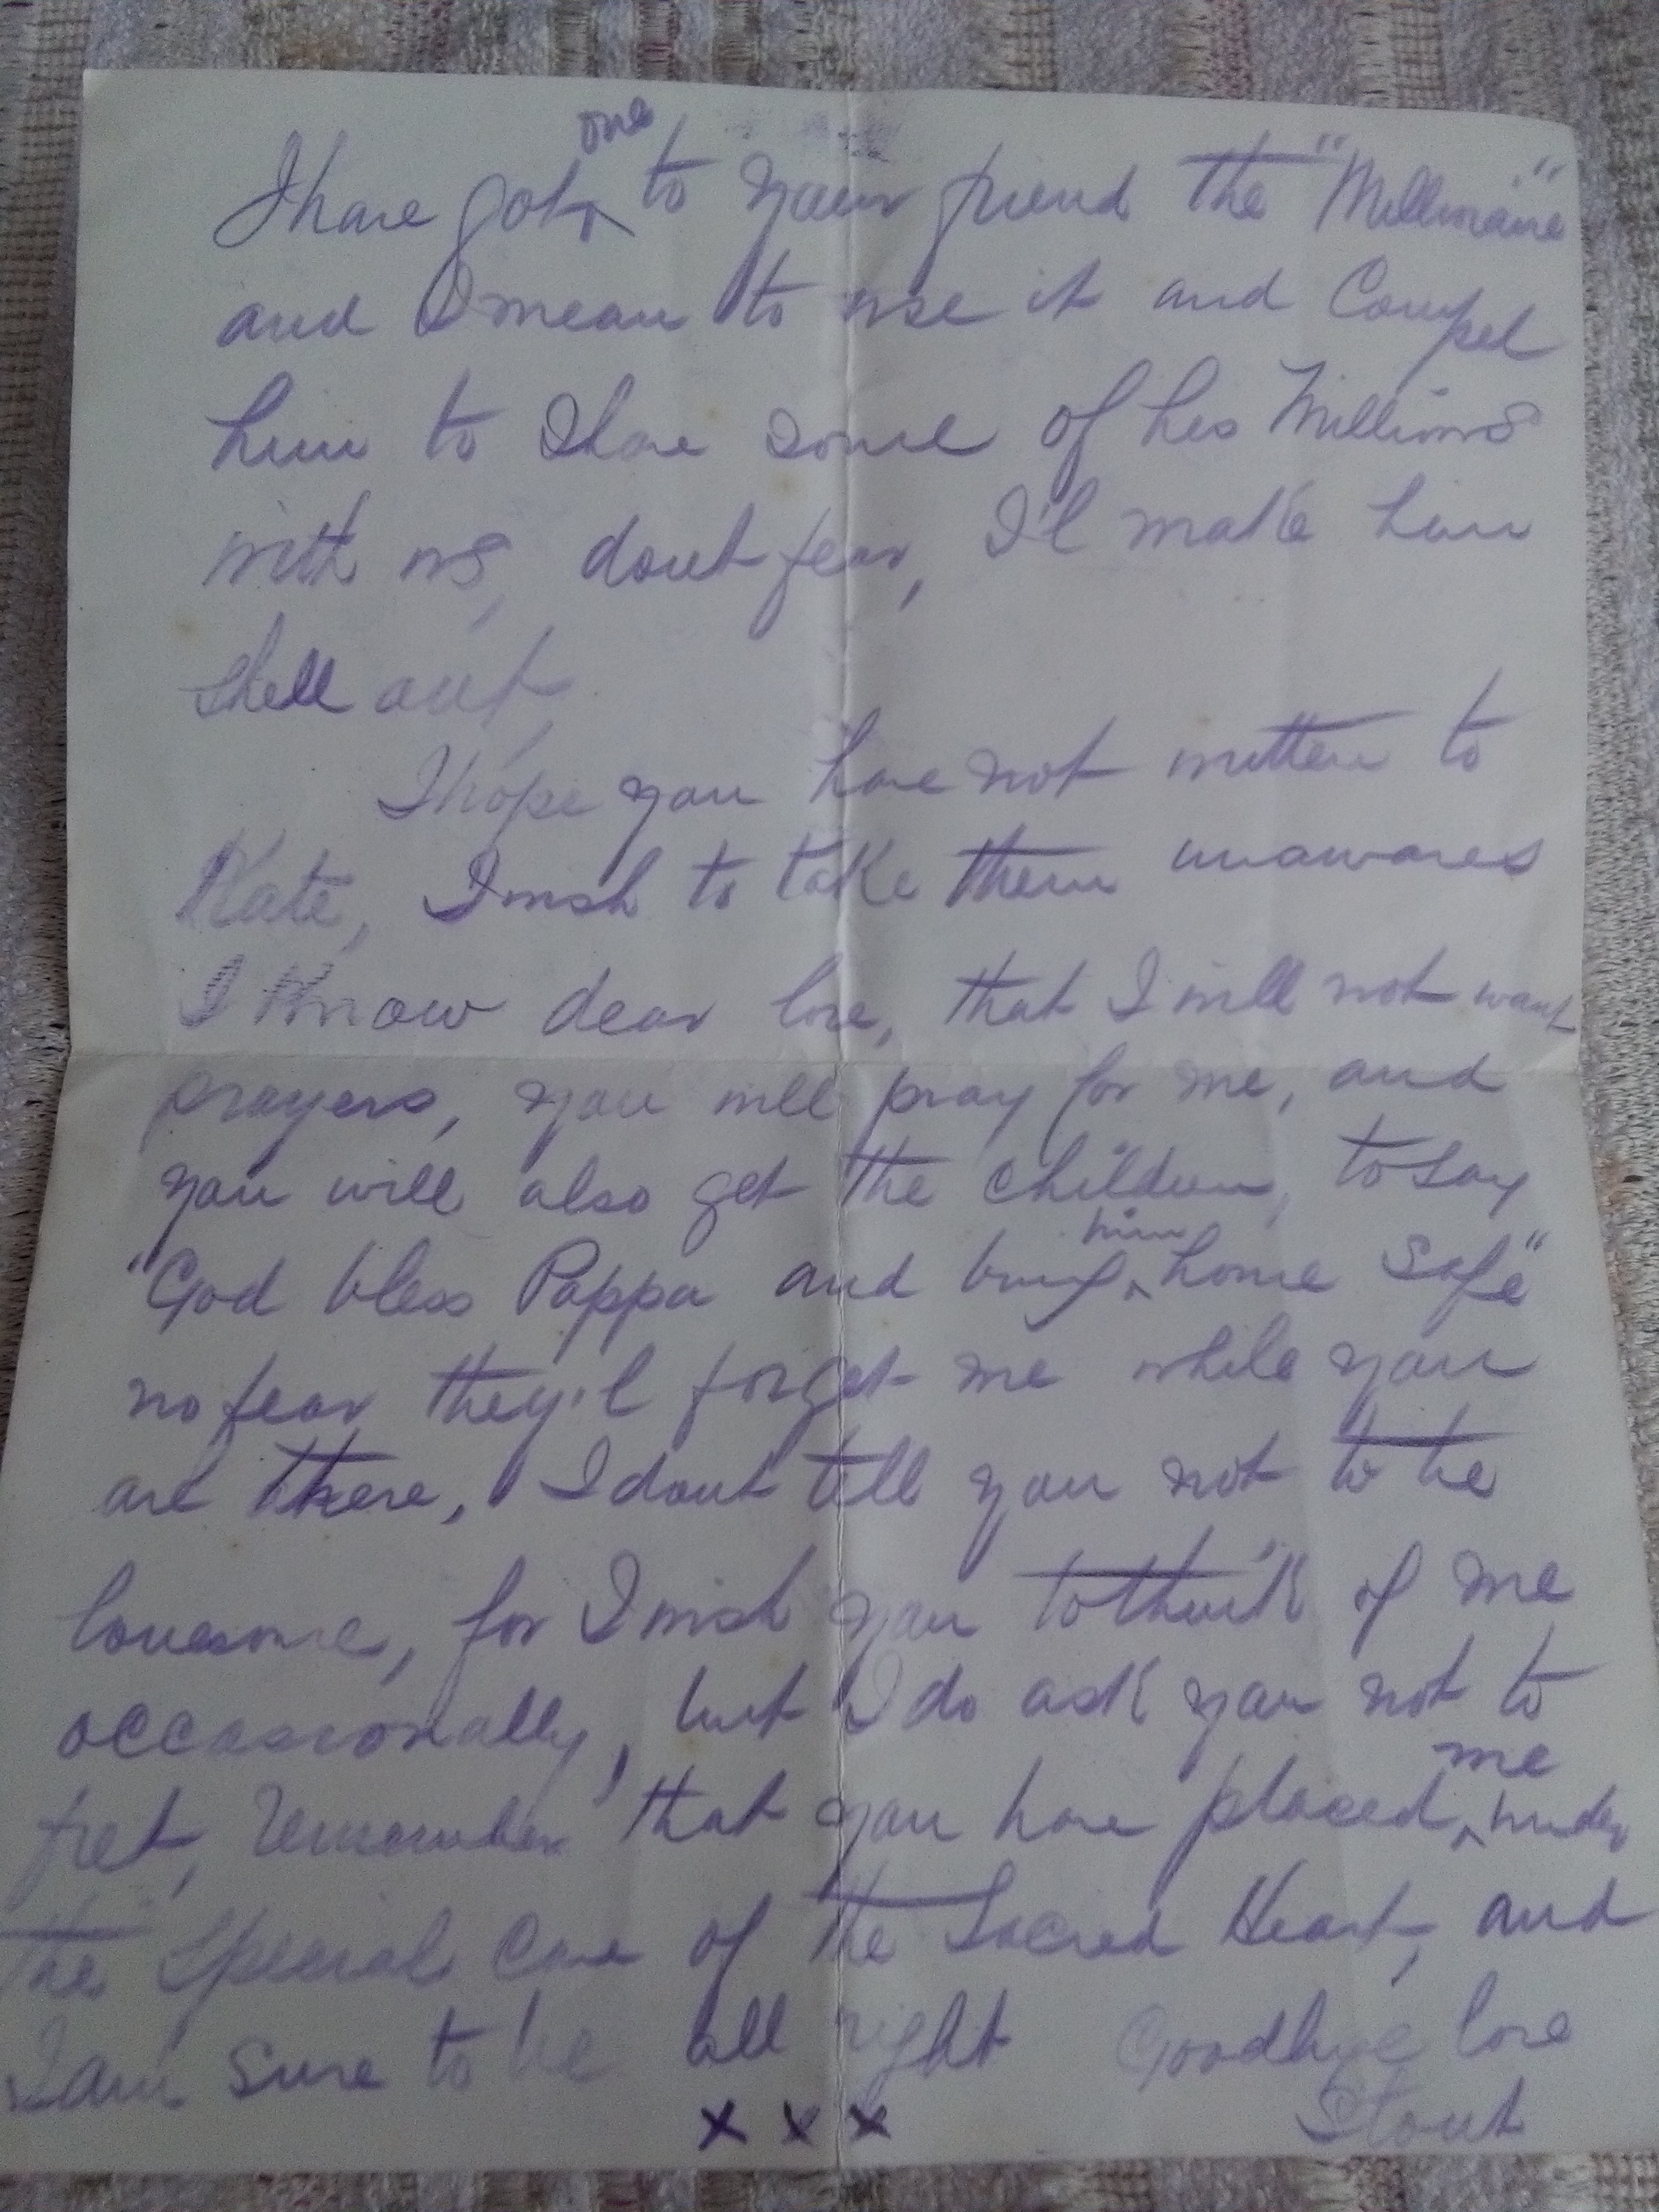 I have got one to your friend the "Millinaire"
and I mean to use it and Compel
him to Share some of his Millions
with us, dont fear, I'l make him
shell out,
I hope you have not written to
Kate, I wish to take them unawares
I Know dear love, that I will not want
prayers, you will pray for me, and
you will also get the children, to say
"God bless Pappa and bring him home Safe"
no fear they'l forget me while you
are there, I dont tell you not to be
lonesome, for I wish you to think of me
occasionally, but I do ask you not to
fret, remember that you have placed me under
the Special Care of the Sacred Heart, and
I am sure to be all right Goodbye love
x x x Stout